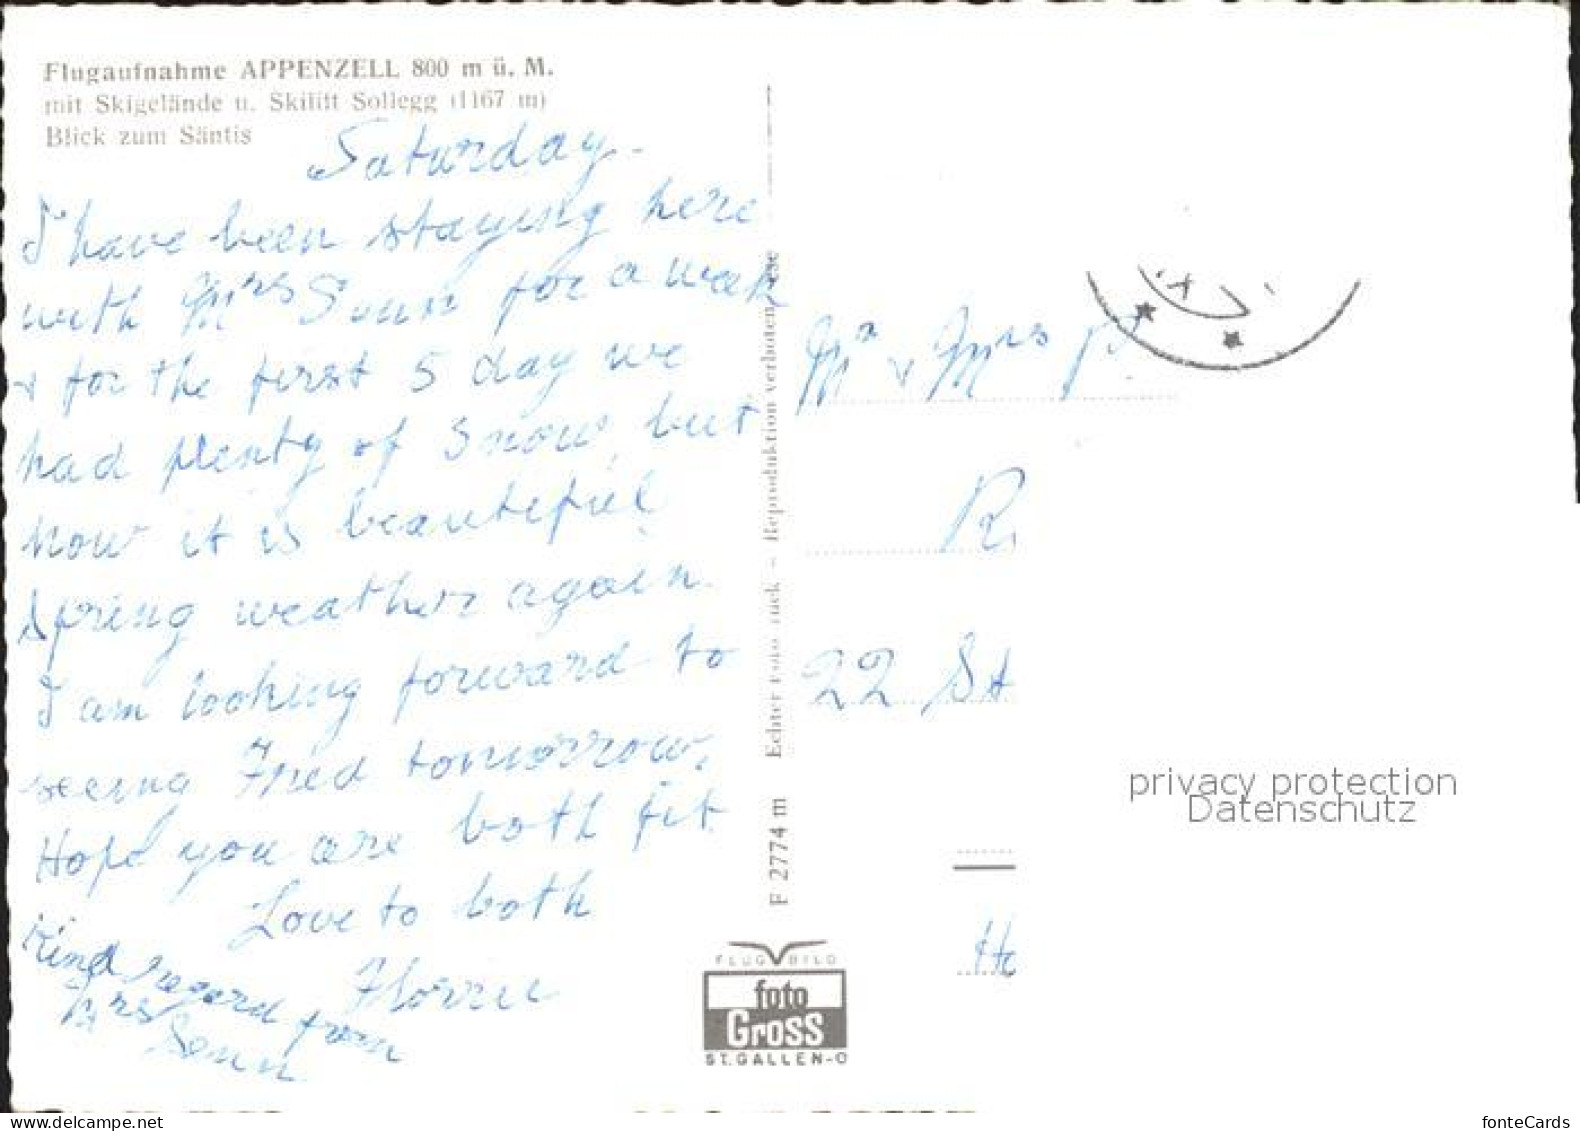 Flugaufnahme APPENZELL 800 m ü. M.
mit Skigelände u. Skilift Sollegg (1167 m)
Blick zum Säntis
Saturday.
I have been staying here
with Mrs Senn for a week
& for the first 5 day we
had plenty of snow, but
now it is beautiful
spring weather again.
I am looking forward to
seeing Fried tomorrow.
Hope you are both fit.
Love to both
Kind regard from
Mrs Senn
F 2774 m
Echter Foto-Druck - Reproduktion verboten
FLUGBILD
foto
Gross
ST. GALLEN-O
Mr & Mrs
R
22 St
privacy protection
Datenschutz
www.delcampe.net
fonteCards